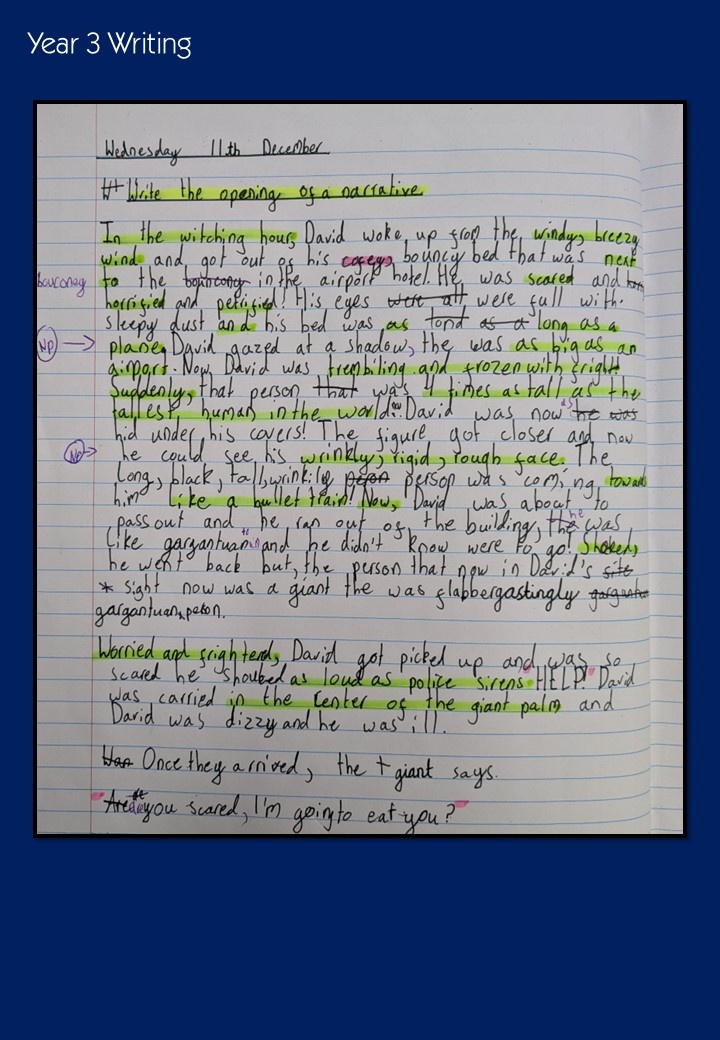 Year 3 Writing
Wednesday 11th December
Write the opening of a narrative
In the witching hour, David woke up from the windy, breezy
wind and got out of his cosey, bouncy bed that was next
bouconey
to the bouncony in the airport hotel. He was scared and
horrified and petrified! His eyes were all were full with
sleepy dust and his bed was as tond as a long as a
NP
plane. David gazed at a shadow, the was as big as an
airport. Now, David was trembiling and frozen with fright.
Suddenly, that person that was 4 times as tall as the
tallest human in the world. David was now as he was
hid under his covers! The figure got closer and now
NP
he could see his wrinkly, rigid, rough face. The
long, black, tall, wrinkily peron person was coming toward
him like a bullet train! Now, David was about to
pass out and he ran out of the building, the he was
like gargantuan and he didn't know were to go! Shoked,
he went back but, the person that now in David's site
* sight now was a giant the was flabbergastingly gargantu
gargantuan, peron.
Worried and frightend, David got picked up and was so
scared he shouted as loud as police sirens "HELP!" David
was carried in the center of the giant palm and
David was dizzy and he was ill.
Wan Once they arrived, the t giant says.
"Are you scared, I'm going to eat you?"